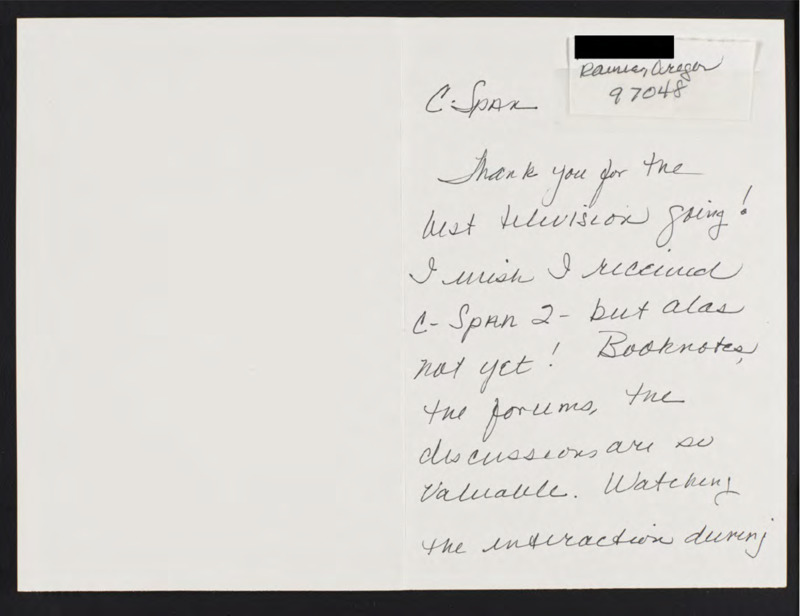 Rainier, Oregon
97048
C-Span
Thank you for the
best television going!
I wish I received
C-Span 2 - but alas
not yet! Booknotes,
the forums, the
discussions are so
valuable. Watching
the interaction during